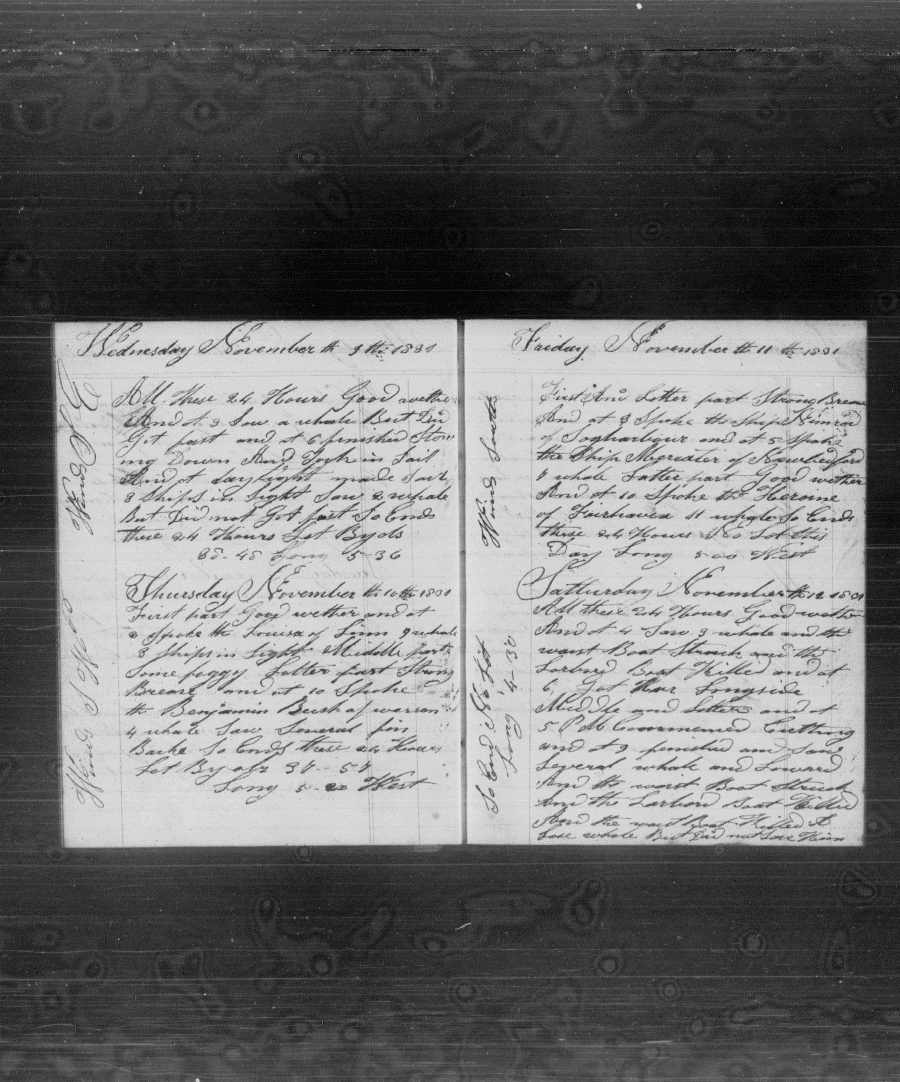 Wednesday November th 9 th 1831
Wind S E
All these 24 Hours Good wether
And at 3 Saw a whale But Did
Get fast and at 6 finished Stow
ing Down And Took in Sail
And at daylight made Sail
3 Ships in Sight Saw 2 whale
But Did not Get fast So Ends
these 24 Hours Lat By obs
38-48 Long 5-36
Thursday November th 10 th 1831
Wind S
First part Good wether and at
2 Spoke the Louisa of Linn 9 whale
3 Ships in Sight Middle part
Some foggy Latter part Strong
Brease and at 10 Spoke
th Benjamin Bush of warren
4 whale Saw Several fin
Backe So Ends these 24 Hours
Lat By obs 37-57
Long 5-20 West
Friday November th 11 th 1831
Wind South
First And Latter part Strong Breas
And at 3 Spoke the Ship Nimrod
of Sagharbour and at 5 Spoke
the Ship of Newbedford
7 whale Latter part Good wether
And at 10 Spoke the Herome
of Fairhaven 11 whale So Ends
these 24 Hours No Lat this
Day Long 5 00 West
Satturday November th 12 1831
So End No Lat
Long 4-30
All these 24 Hours Good wether
And at 4 Saw 3 whale and the
waist Boat Struck and the
Larbord Boat Killed and at
6 Got thar Longside
Middle and Latter and at
5 P M Commenced Cutting
and at 9 finished and Saw
Several whale and Loward
And the waist Boat Struck
And the Larbord Boat Killed
And the waist Boat Killed A
Lose whale But Did not Save Him